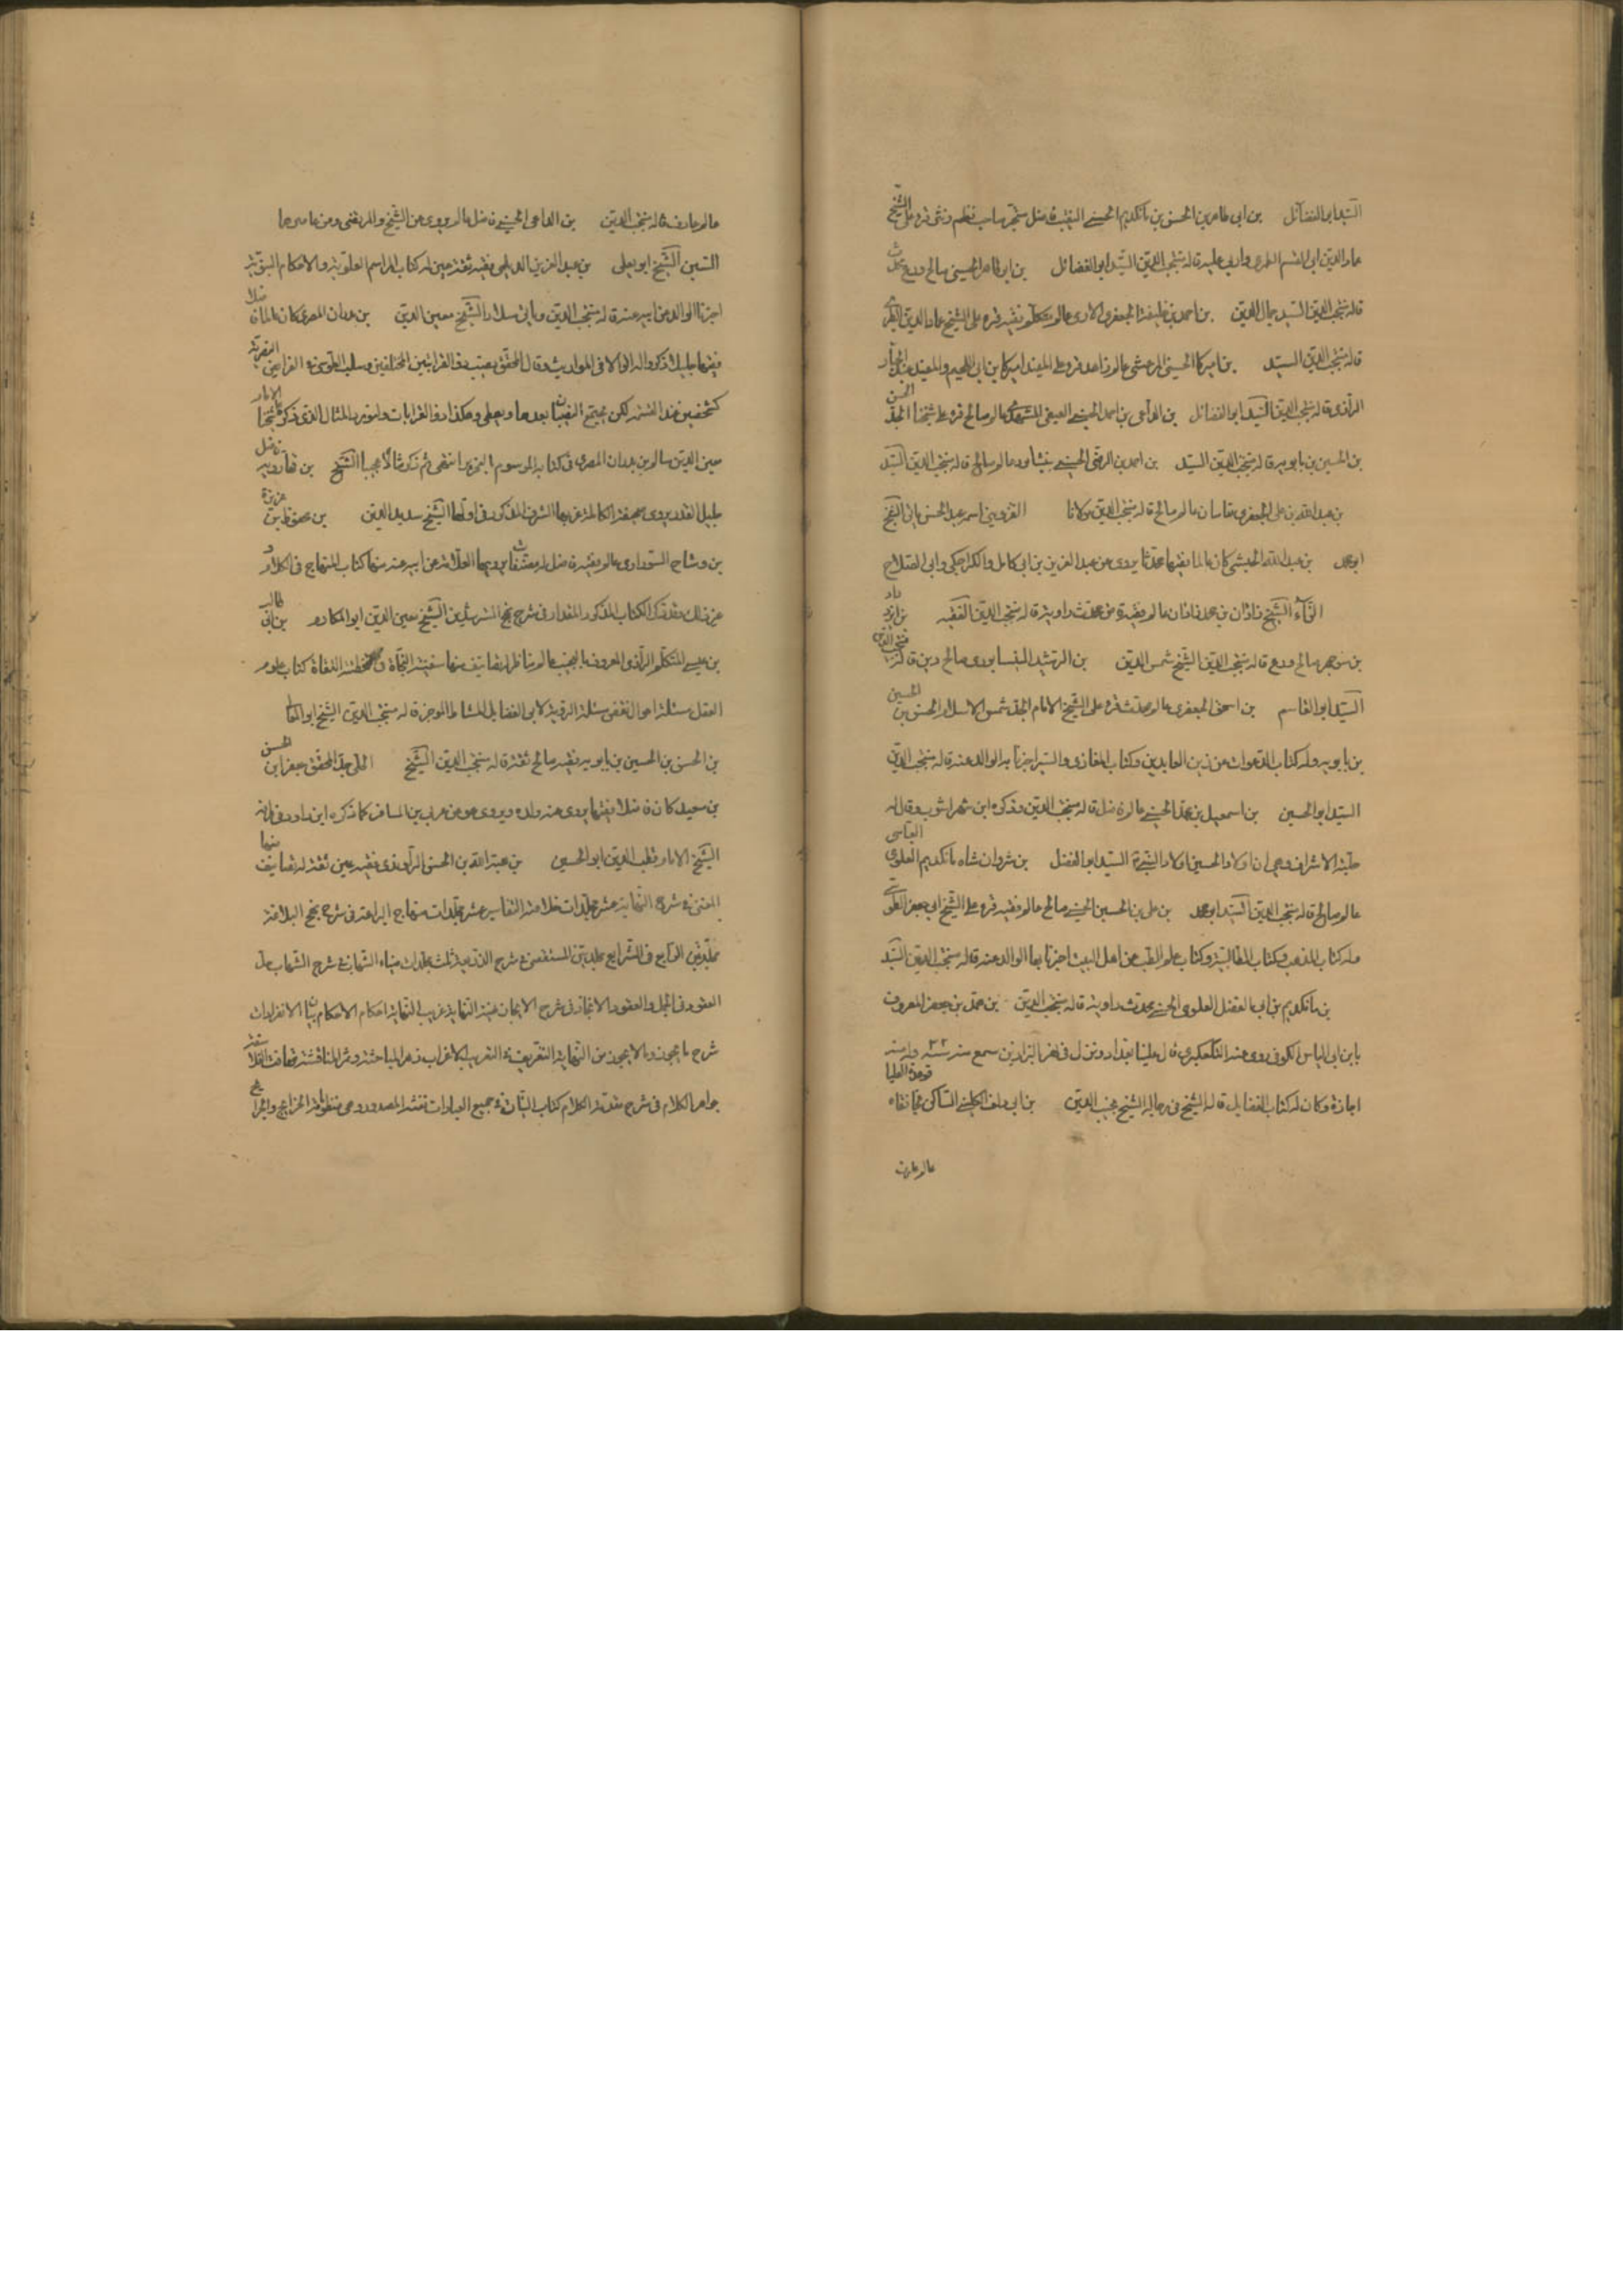 السيد ابو الفضائل بن ابي طاهر بن الحسن بن مانكديم الحسني النقيب فاضل متبحر صاحب نظم ونثر قرء على الشيخ
عماد الدين ابي القسم الطبري وابي عليه قاله منتجب الدين السيد ابو الفضائل بن ابي طاهر الحسيني صالح ورع محدث
قاله منتجب الدين السيد جمال الدين بن احمد بن خليفة الجعفري الاردي عالم متكلم فقيه قرء على الشيخ عماد الدين الطبري
قاله منتجب الدين السيد بن اميركا الحسيني المرعشي عالم زاهد قرء على المفيد اميركا بن ابي اللجيم والمفيد عبد الجبار
الرازي قاله منتجب الدين السيد ابو الفضائل بن الداعي بن احمد الحسيني العقيقي المشهدي عالم صالح قرء على شيخنا الجد الحسن
بن الحسين بن بابويه قاله منتجب الدين السيد بن احمد بن الرضي الحسيني بنيشابور عالم صالح قاله منتجب الدين السيد
بن عبد الله بن علي الجعفري بقاسان عالم صالح قاله منتجب الدين مولانا القزويني اسمه عبد الحسن ياتي الشيخ
ابو محمد بن عبد الله الحبشي كان عالما فقيها محدثا يروي عن عبد العزيز بن ابي كامل والكراجكي وابي الصلاح
الزاء الشيخ زاذان بن محمد زاذان عالم فقيه من محدث راوية قاله منتجب الدين الفقيه بن ايزداد
بن منوجهر صالح ورع قاله منتجب الدين الشيخ شمس الدين بن الرشيد النيسابوري صالح دين قاله منتجب الدين
السيد ابو القاسم بن اسحق الجعفري عالم محدث قرء على الشيخ الامام الجد شمس الاسلام الحسن بن الحسين
بن بابويه وله كتاب الدعوات عن زين العابدين وكتاب المغازي والسير اخبرنا به الوالد عنه قاله منتجب الدين
السيد ابو الحسين بن اسمعيل بن محمد الحسني عالم فاضل قاله منتجب الدين وذكره ابن شهراشوب وقال له
حلية الاشراف وهي ان اولاد الحسين اولاد النبي السيد ابو الفضل بن شروان شاه مانكديم العلوي العباسي
عالم صالح قاله منتجب الدين السيد ابو محمد بن علي بن الحسين الحسني صالح عالم فقيه قرء على الشيخ ابي جعفر الطوسي
وله كتاب المذهب وكتاب الطالبية وكتاب علم الطب عن اهل البيت اخبرنا بها الوالد عنه قاله منتجب الدين السيد
بن مانكديم بن ابي الفضل العلوي الحسني محدث راوية قاله منتجب الدين بن محمد بن جعفر المعروف
بابن ابي الياس الكوفي روى عنه التلعكبري قال علينا بغداد ونزل في نهر البزازين سمع منه سنة ٣٣ وله منه
اجازة وكان له كتاب الفضايل قاله الشيخ في رجاله الشيخ مجيب الدين بن ابي دلف الكليني الساكن بخانقاه قوهدة العليا
عالم عارف
عالم عارف قاله منتجب الدين بن الداعي الحسيني فاضل عالم يروي عن الشيخ والمرتضى ومن عاصرهما
السين الشيخ ابو يعلى بن عبد العزيز الديلمي فقيه ثقة عين له كتاب المراسم العلوية والاحكام النبوية
اخبرنا الوالد عن ابيه عنه قاله منتجب الدين وياتي سلار الشيخ معين الدين بن بدران المصري كان عالما فاضلا
فقيها جليلا ذكره الوالا في المواريث وقال المحقق نصير
كشخصين عند القسمة لكن يجتمع النصيبان بعدهما ويصلي وهكذا ذو القرابات ولنورد المثال الذي ذكره شيخنا الامام
معين الدين سالم بن بدران المصري في كتابه الموسوم انتهى ثم ذكر مثالا عجيبا الشيخ بن قبارويه فاضل
جليل القدر يروي صحيفة الكاملة عن بهاء الشرف المذكور في اولها الشيخ سديد الدين بن محفوظ بن عزيزة
بن وشاح السوراوي عالم فقيه فاضل له مصنفات يرويها العلامة عن ابيه عنه منها كتاب المنهاج في الكلام
وغير ذلك وقد ذكر الكتاب المذكور المقداد في شرح نهج المسترشدين الشيخ معين الدين ابو المكارم بن ابي طالب
بن عيسى المتكلم الرازي المعروف بالنجيب عالم مناظر له تصانيف منها سفينة النجاة في تخطئة النفاة كتاب علوم
العقل مسئلة احوال نقض مسئلة الرؤية لابي الفضايل المشاط الموجز قاله منتجب الدين الشيخ ابو المعالي
بن الحسن بن الحسين بن بابويه فقيه صالح ثقة قاله منتجب الدين الشيخ الحلي جد المحقق جعفر بن الحسن
بن سعيد كان فاضلا فقيها يروي عنه ولده ويروي هو عن عربي بن المسافر كما ذكره ابن داود
الشيخ الامام قطب الدين ابو الحسين بن هبة الله بن الحسن الراوندي فقيه عين ثقة له تصانيف منها
المغني في شرح النهاية عشر مجلدات خلاصة التفاسير عشر مجلدات منهاج البراعة في شرح نهج البلاغة
مجلدتين الرايع في الشرايع مجلدتين المستقصى في شرح الذريعة ثلث مجلدات ضياء الشهاب في شرح الشهاب حل
العقود في الجمل والعقود الانجاز في شرح الايجاز نهية النهاية غريب النهاية احكام الاحكام بيان الانفرادات
شرح ما يجوز وما لا يجوز من النهاية التغريب في التعريب الاغراب في الاعراب زهر المباحثة وثمر المناقشة تهافت الفلاسفة
جواهر الكلام في شرح مقدمة الكلام كتاب النيات في جميع العبادات نفثة المصدور وهي منظوماته الخرايج والجرايح